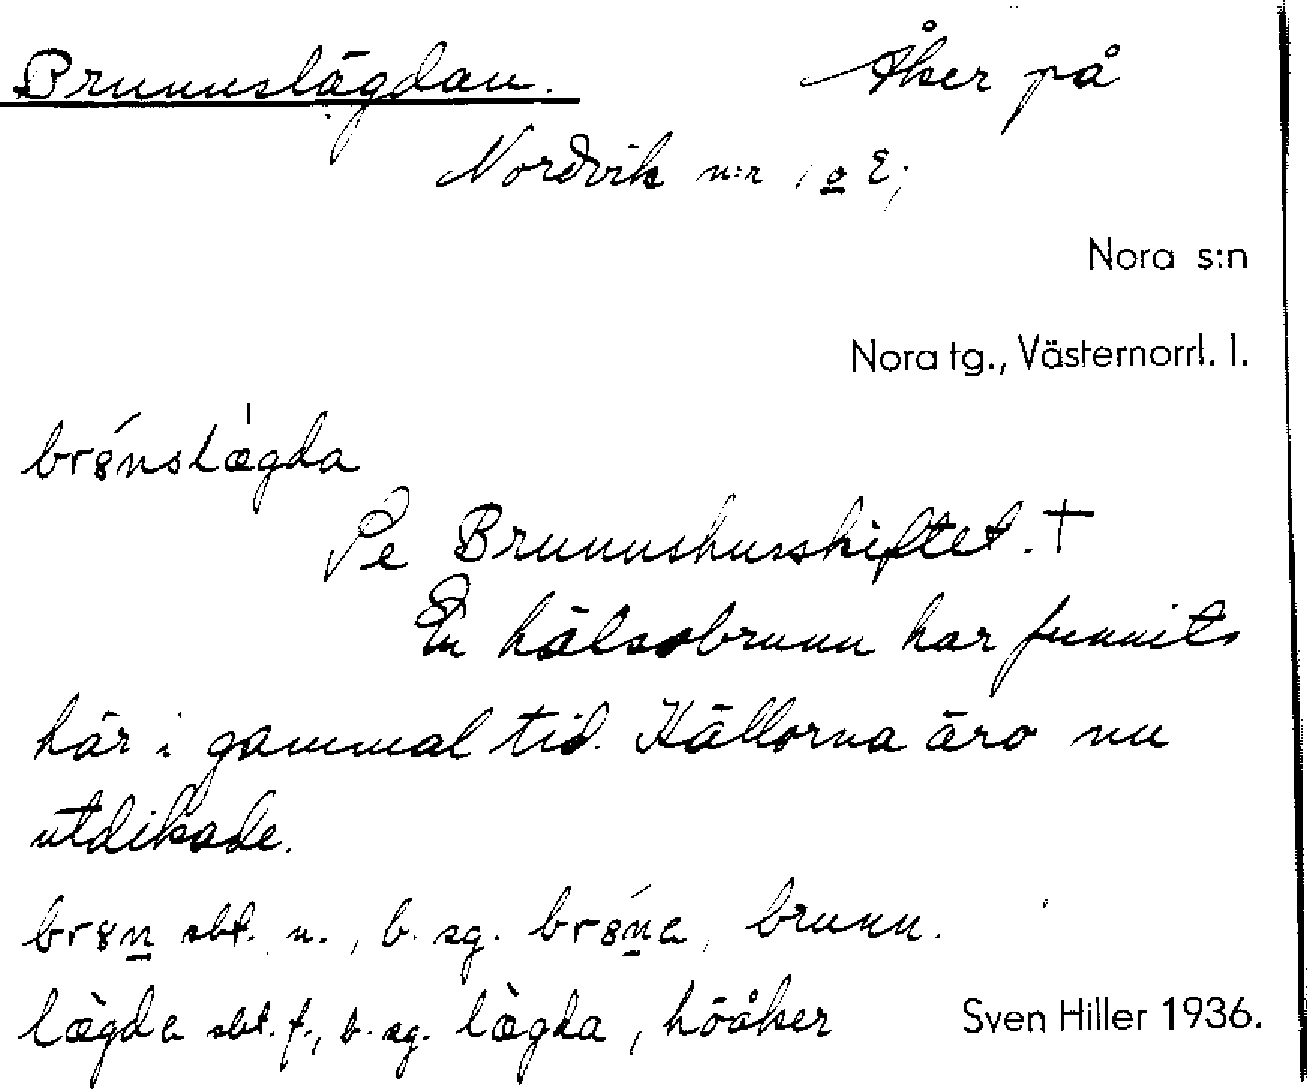 Brunnslägdan. Åker på
Nordvik n:r 1 o 2;
Nora s:n
Nora tg., Västernorrl. l.
br8́nslægda
Se Brunnshusskiftet. †
En hälsobrunn har funnits
här i gammal tid. Källorna äro nu
utdikade.
br8n sbt. n., b. sg. br8́ne, brunn.
læ̀gde sbt. f., b. sg. læ̀gda, höåker
Sven Hiller 1936.